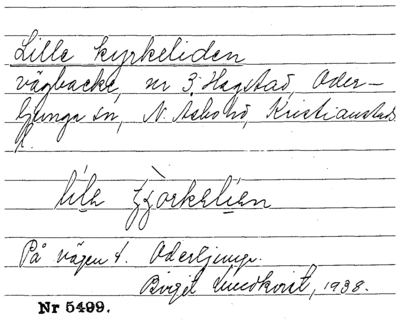 Lille kyrkeliden
vägbacke, nr 3 Hagstad, Oder-
ljunga sn, N. Åsbo hd, Kristianstads
l.
lila
På vägen t. Oderljunga.
Birgit Lundkvist, 1938.
Nr 5499.